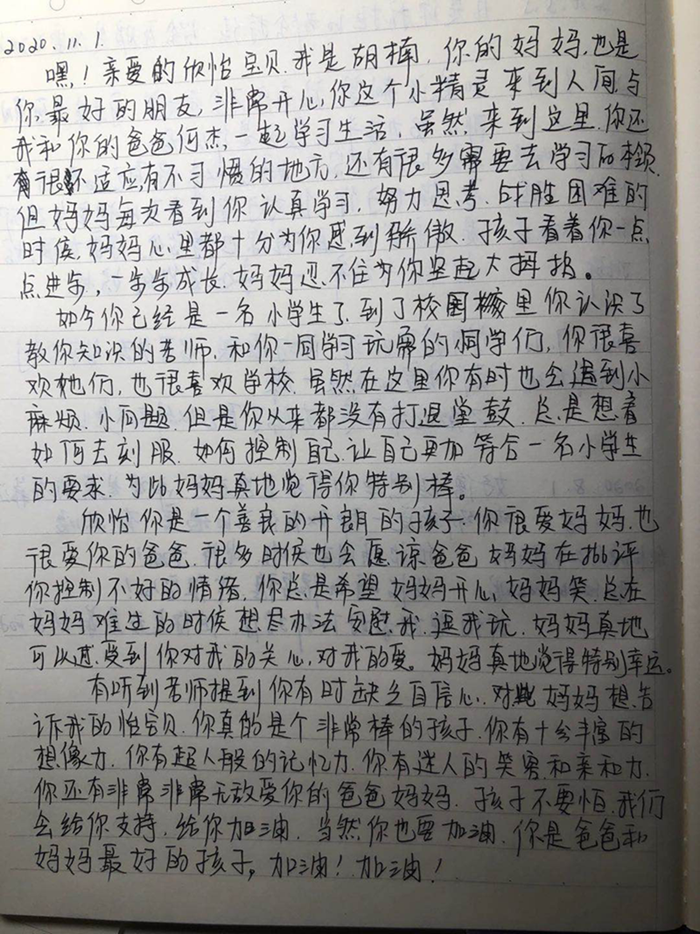 2020.11.1.
嘿！亲爱的欣怡宝贝.我是胡楠,你的妈妈,也是
你最好的朋友,非常开心,你这个小精灵来到人间与
我和你的爸爸何杰,一起学习生活,虽然,来到这里,你还
有很多不适应有不习惯的地方,还有很多需要去学习的本领.
但妈妈每次看到你认真学习,努力思考,战胜困难的
时候,妈妈心里都十分为你感到骄傲.孩子看着你一点
点进步,一步步成长,妈妈忍不住为你竖起大拇指。
如今你已经是一名小学生了,到了校园里你认识了
教你知识的老师,和你一同学习玩耍的同学们,你很喜
欢她们,也很喜欢学校.虽然在这里你有时也会遇到小
麻烦.小问题.但是你从来都没有打退堂鼓.总是想着
如何去刻服.如何控制自己.让自己更加符合一名小学生
的要求.为此妈妈真地觉得你特别棒。
欣怡你是一个善良的开朗的孩子.你很爱妈妈.也
很爱你的爸爸.很多时候也会愿谅爸爸妈妈在批评
你控制不好的情绪.你总是希望妈妈开心,妈妈笑.总在
妈妈难生的时候想尽办法安慰我.逗我玩.妈妈真地
可以感受到你对我的关心,对我的爱。妈妈真地觉得特别幸运。
有听到老师提到你有时缺乏自信心.对此妈妈想告
诉我的怡宝贝.你真的是个非常棒的孩子.你有十分丰富的
想像力.你有超人般的记忆力.你有迷人的笑容和亲和力.
你还有非常非常无敌爱你的爸爸妈妈.孩子不要怕.我们
会给你支持.给你加油.当然你也要加油.你是爸爸和
妈妈最好的孩子,加油！加油！